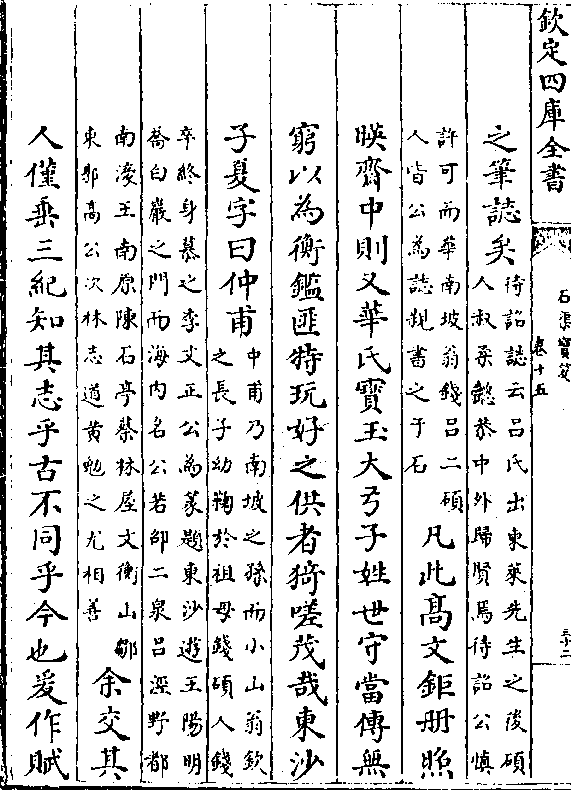 欽定四庫全書
石渠寶笈
卷十五
三十二
之筆誌矣
待詔誌云呂氏出東萊先生之後碩
人叔柔懿恭中外歸賢焉待詔公慎
許可而華南坡翁錢呂二碩
人皆公為誌親書之于石
凡此髙文鉅册照
暎齋中則又華氏寶玉大弓子姓世守當傳無
窮以為衡鑑匪特玩好之供者猗嗟茂哉東沙
子夏字曰仲甫
中甫乃南坡之孫而小山翁欽
之長子幼鞠於祖母錢碩人錢
卒終身慕之李文正公為篆題東沙遊王陽明
喬白巖之門而海内名公若邵二泉呂涇野都
南濠王南原陳石亭蔡林屋文衡山鄒
東郭高公次林志道黄勉之尤相善
余交其
人僅垂三紀知其志乎古不同乎今也爰作賦